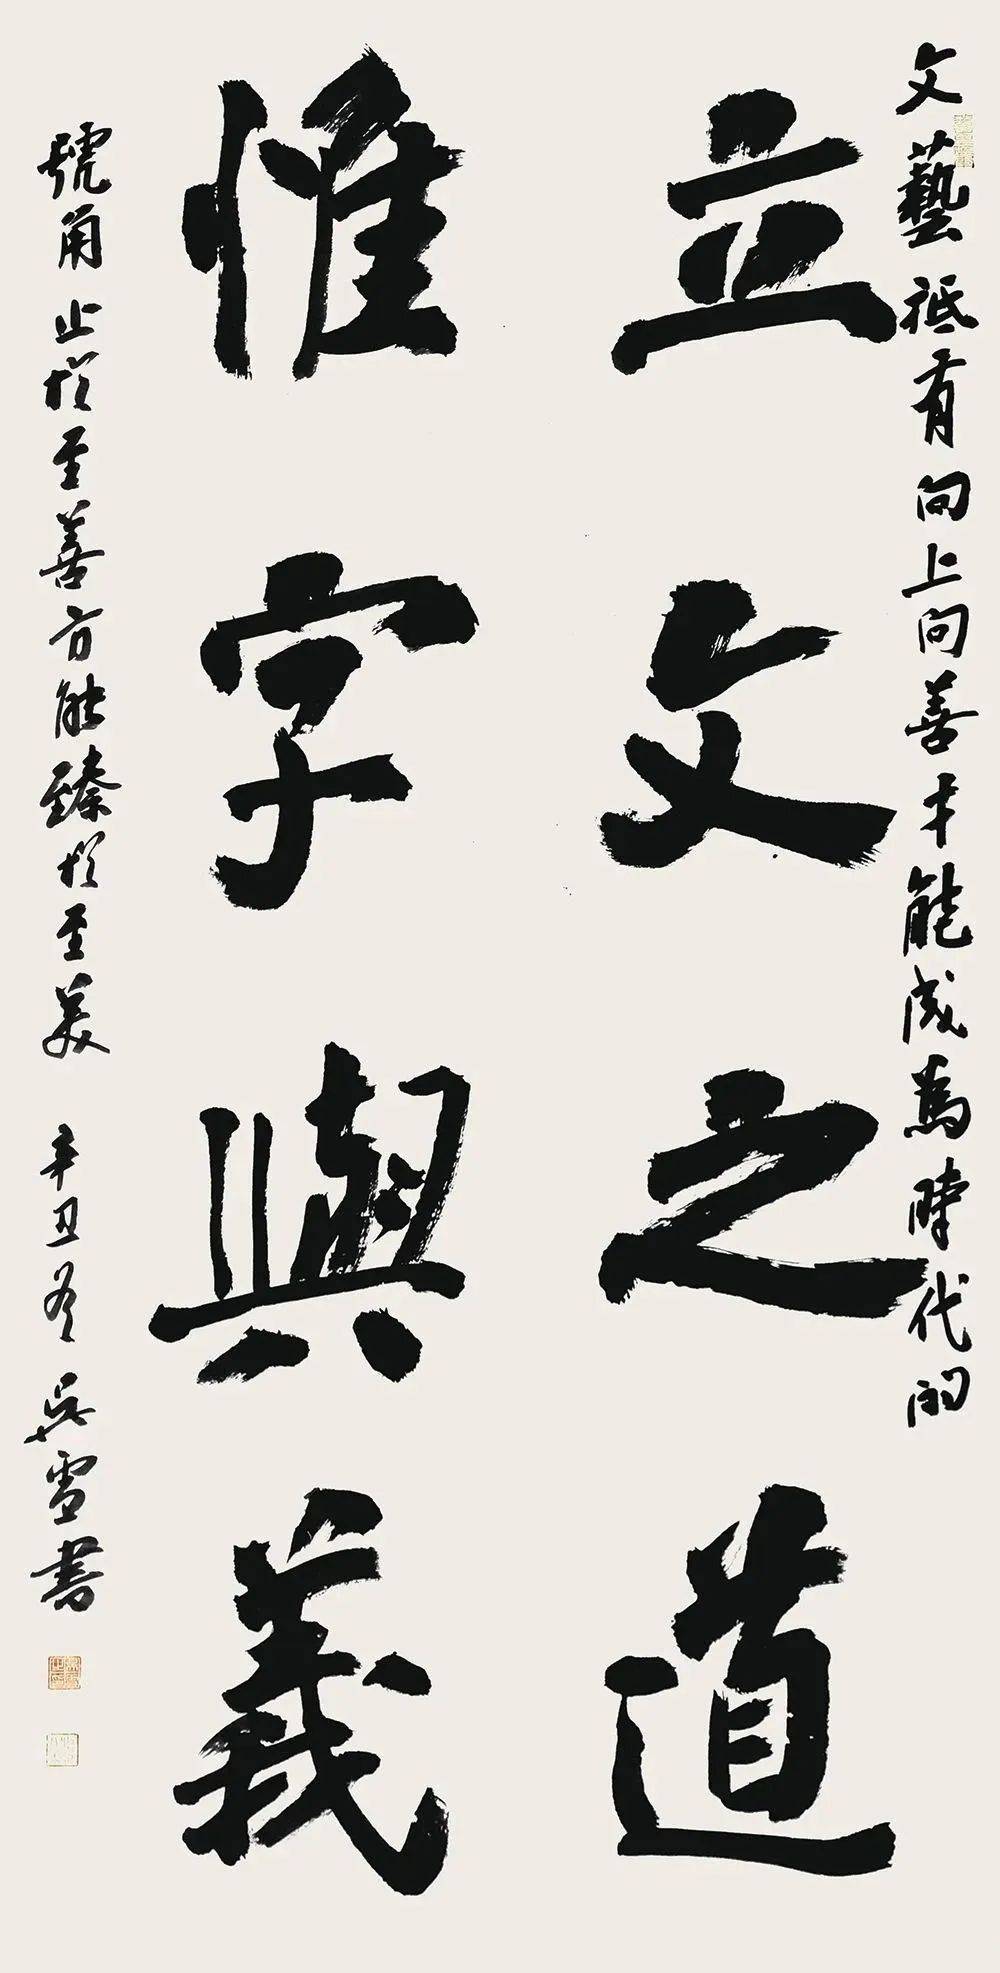 文藝祗有向上向善才能成為時代的
立文之道
惟字與義
號角止於至善方能臻於至美 辛丑冬 吳雪書